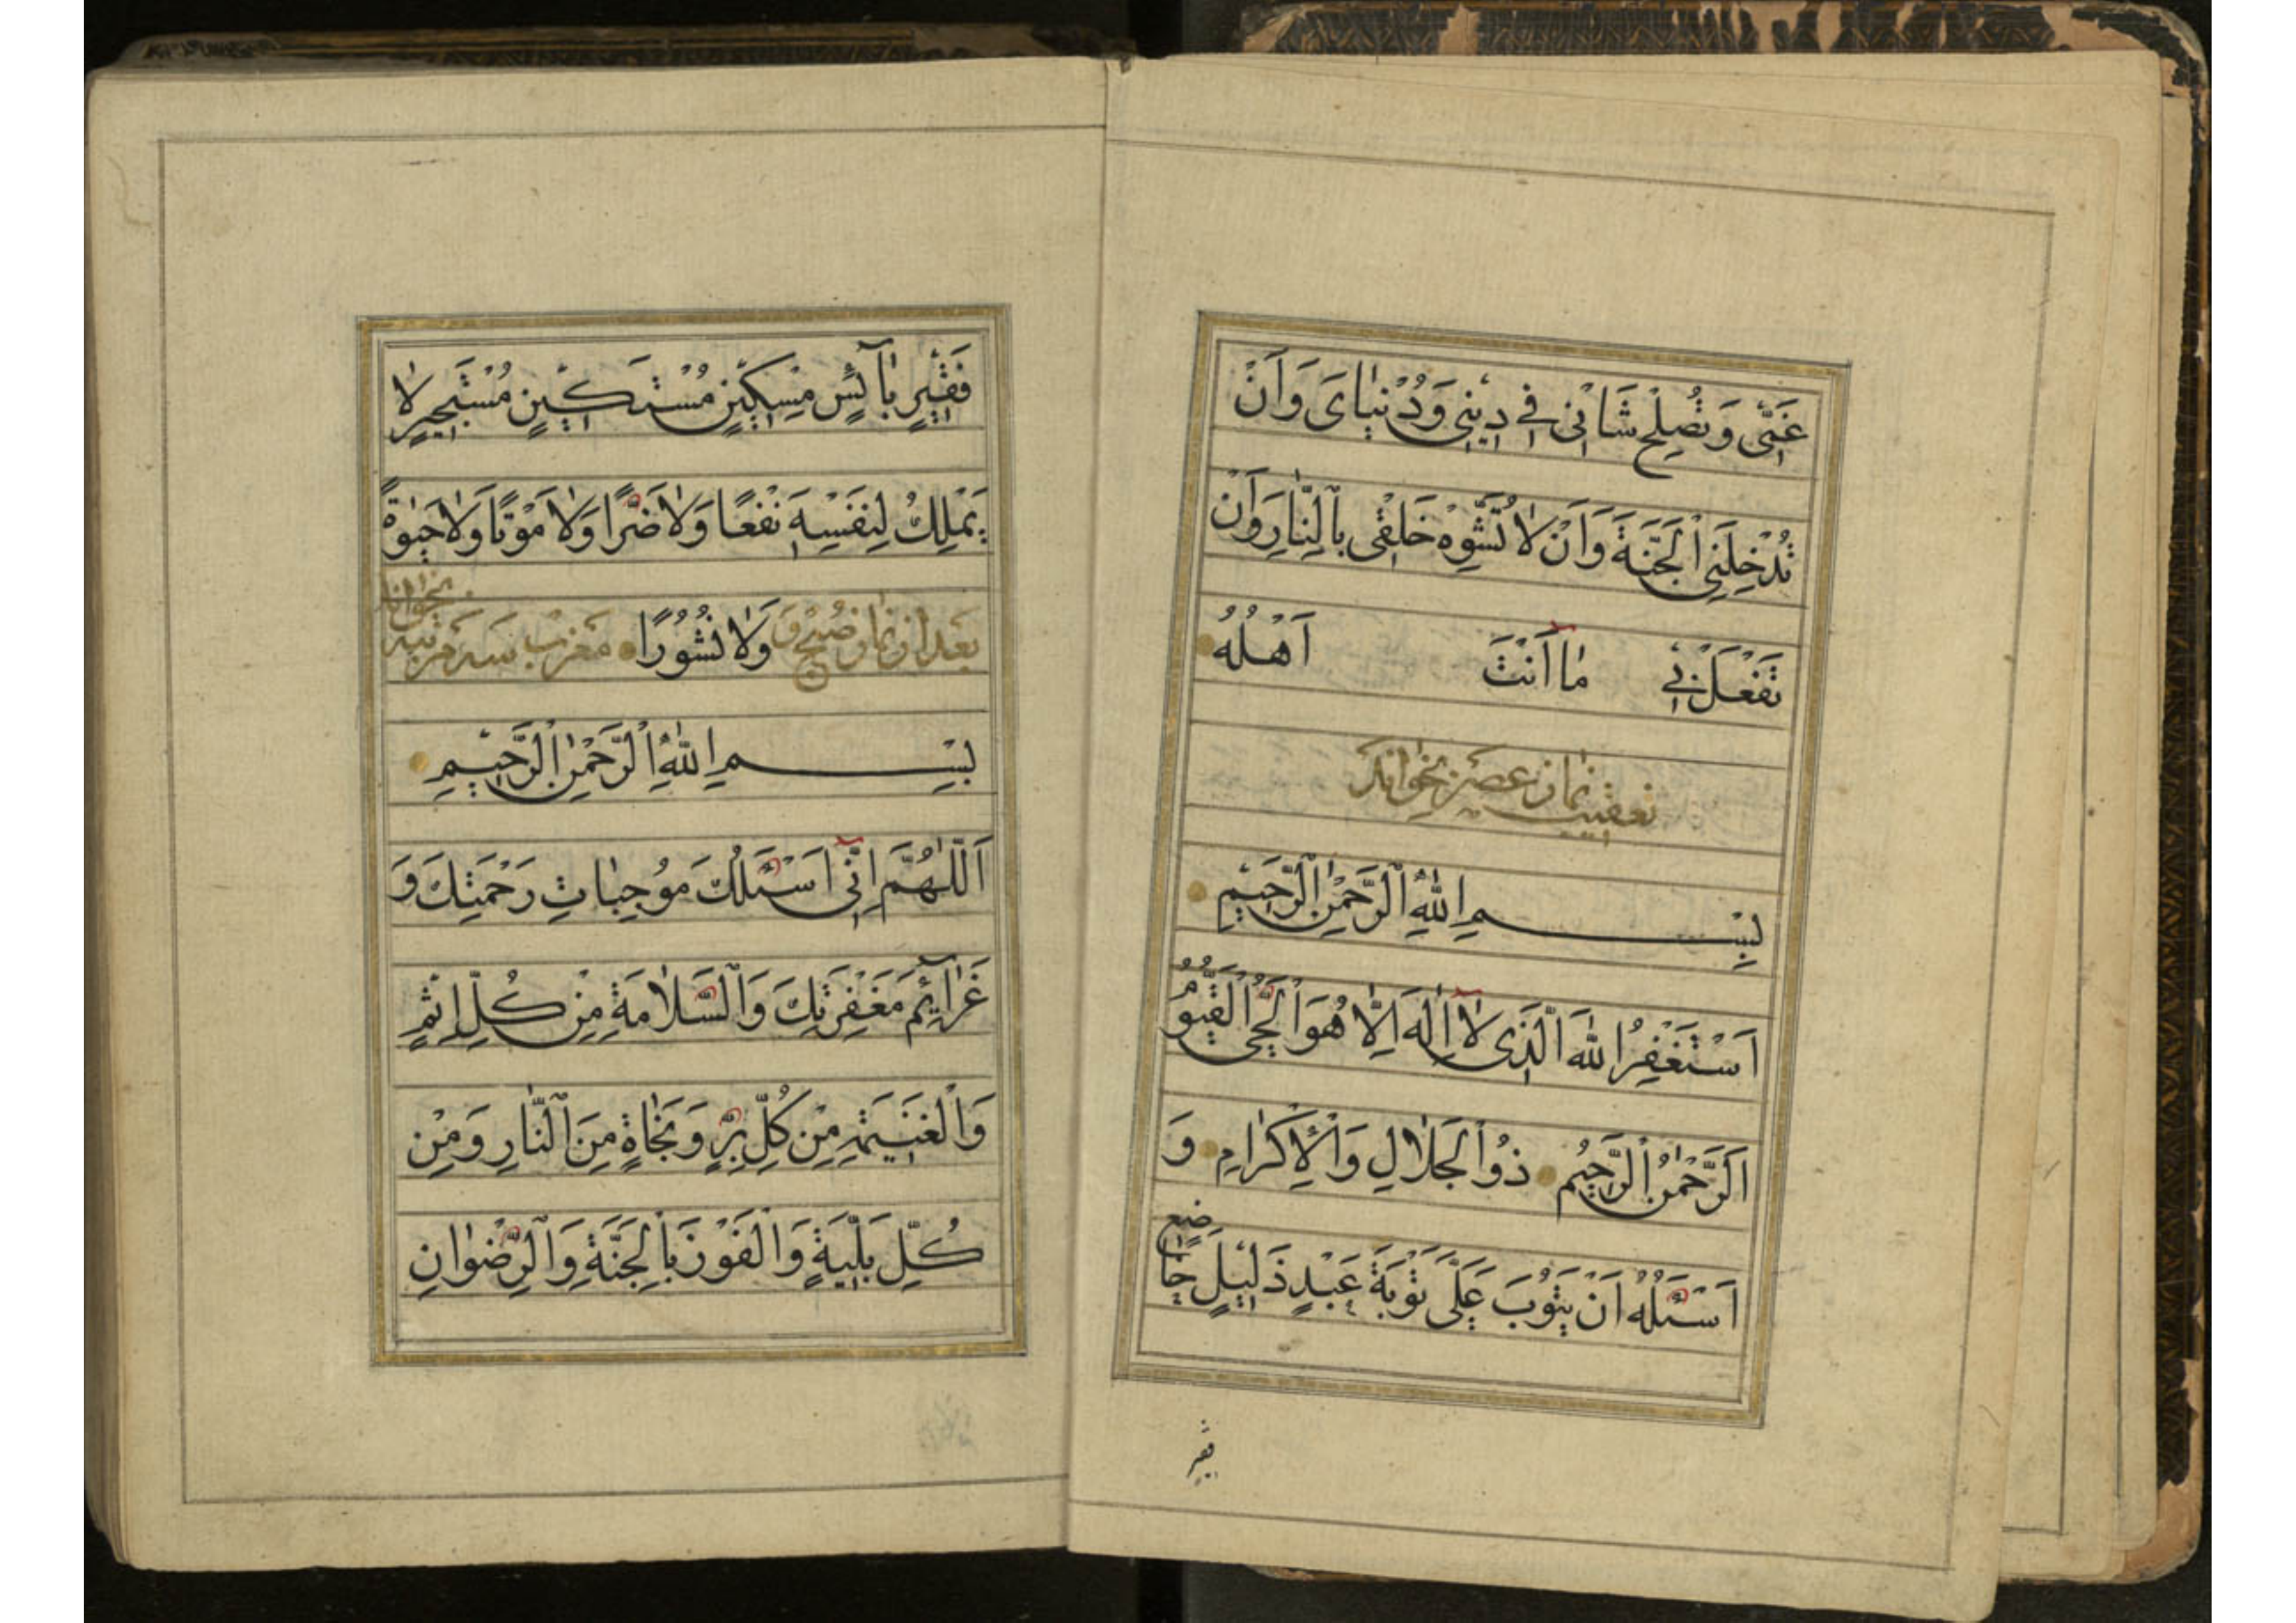 عَنّٖى وَتُصْلِحَ شَاْنٖى فٖى دٖينٖى وَدُنْيٰاىَ وَاَنْ
تُدْخِلَنِى الْجَنَّةَ وَاَنْ لٰا تُشَوِّهَ خَلْقٖى بِالنّٰارِ وَاَنْ
تَفْعَلَ بٖى مٰا اَنْتَ اَهْلُهُ
تعقيب نماز عصر بخواند
بِسْمِ اللّٰهِ الرَّحْمٰنِ الرَّحٖيمِ
اَسْتَغْفِرُ اللّٰهَ الَّذٖى لٰا اِلٰهَ اِلّٰا هُوَ الْحَىُّ الْقَيُّومُ
اَلرَّحْمٰنُ الرَّحٖيمُ ذُو الْجَلٰالِ وَالْاِكْرٰامِ وَ
اَسْئَلُهُ اَنْ يَتُوبَ عَلَىَّ تَوْبَةَ عَبْدٍ ذَلٖيلٍ خٰاضِعٍ
فقير
فَقٖيرٍ بٰآئِسٍ مِسْكٖينٍ مُسْتَكٖينٍ مُسْتَجٖيرٍ لٰا
يَمْلِكُ لِنَفْسِهٖ نَفْعًا وَلٰا ضَرًّا وَلٰا مَوْتًا وَلٰا حَيٰوةً
وَلٰا نُشُورًا بعد از نماز صبح و مغرب سه مرتبه بخواند
بِسْمِ اللّٰهِ الرَّحْمٰنِ الرَّحٖيمِ
اَللّٰهُمَّ اِنّٖى اَسْئَلُكَ مُوجِبٰاتِ رَحْمَتِكَ وَ
عَزٰآئِمَ مَغْفِرَتِكَ وَالسَّلٰامَةِ مِنْ كُلِّ اِثْمٍ
وَالْغَنٖيمَةِ مِنْ كُلِّ بِرٍّ وَنَجٰاةٍ مِنَ النّٰارِ وَمِنْ
كُلِّ بَلِيَّةٍ وَالْفَوْزَ بِالْجَنَّةِ وَالرِّضْوٰانِ